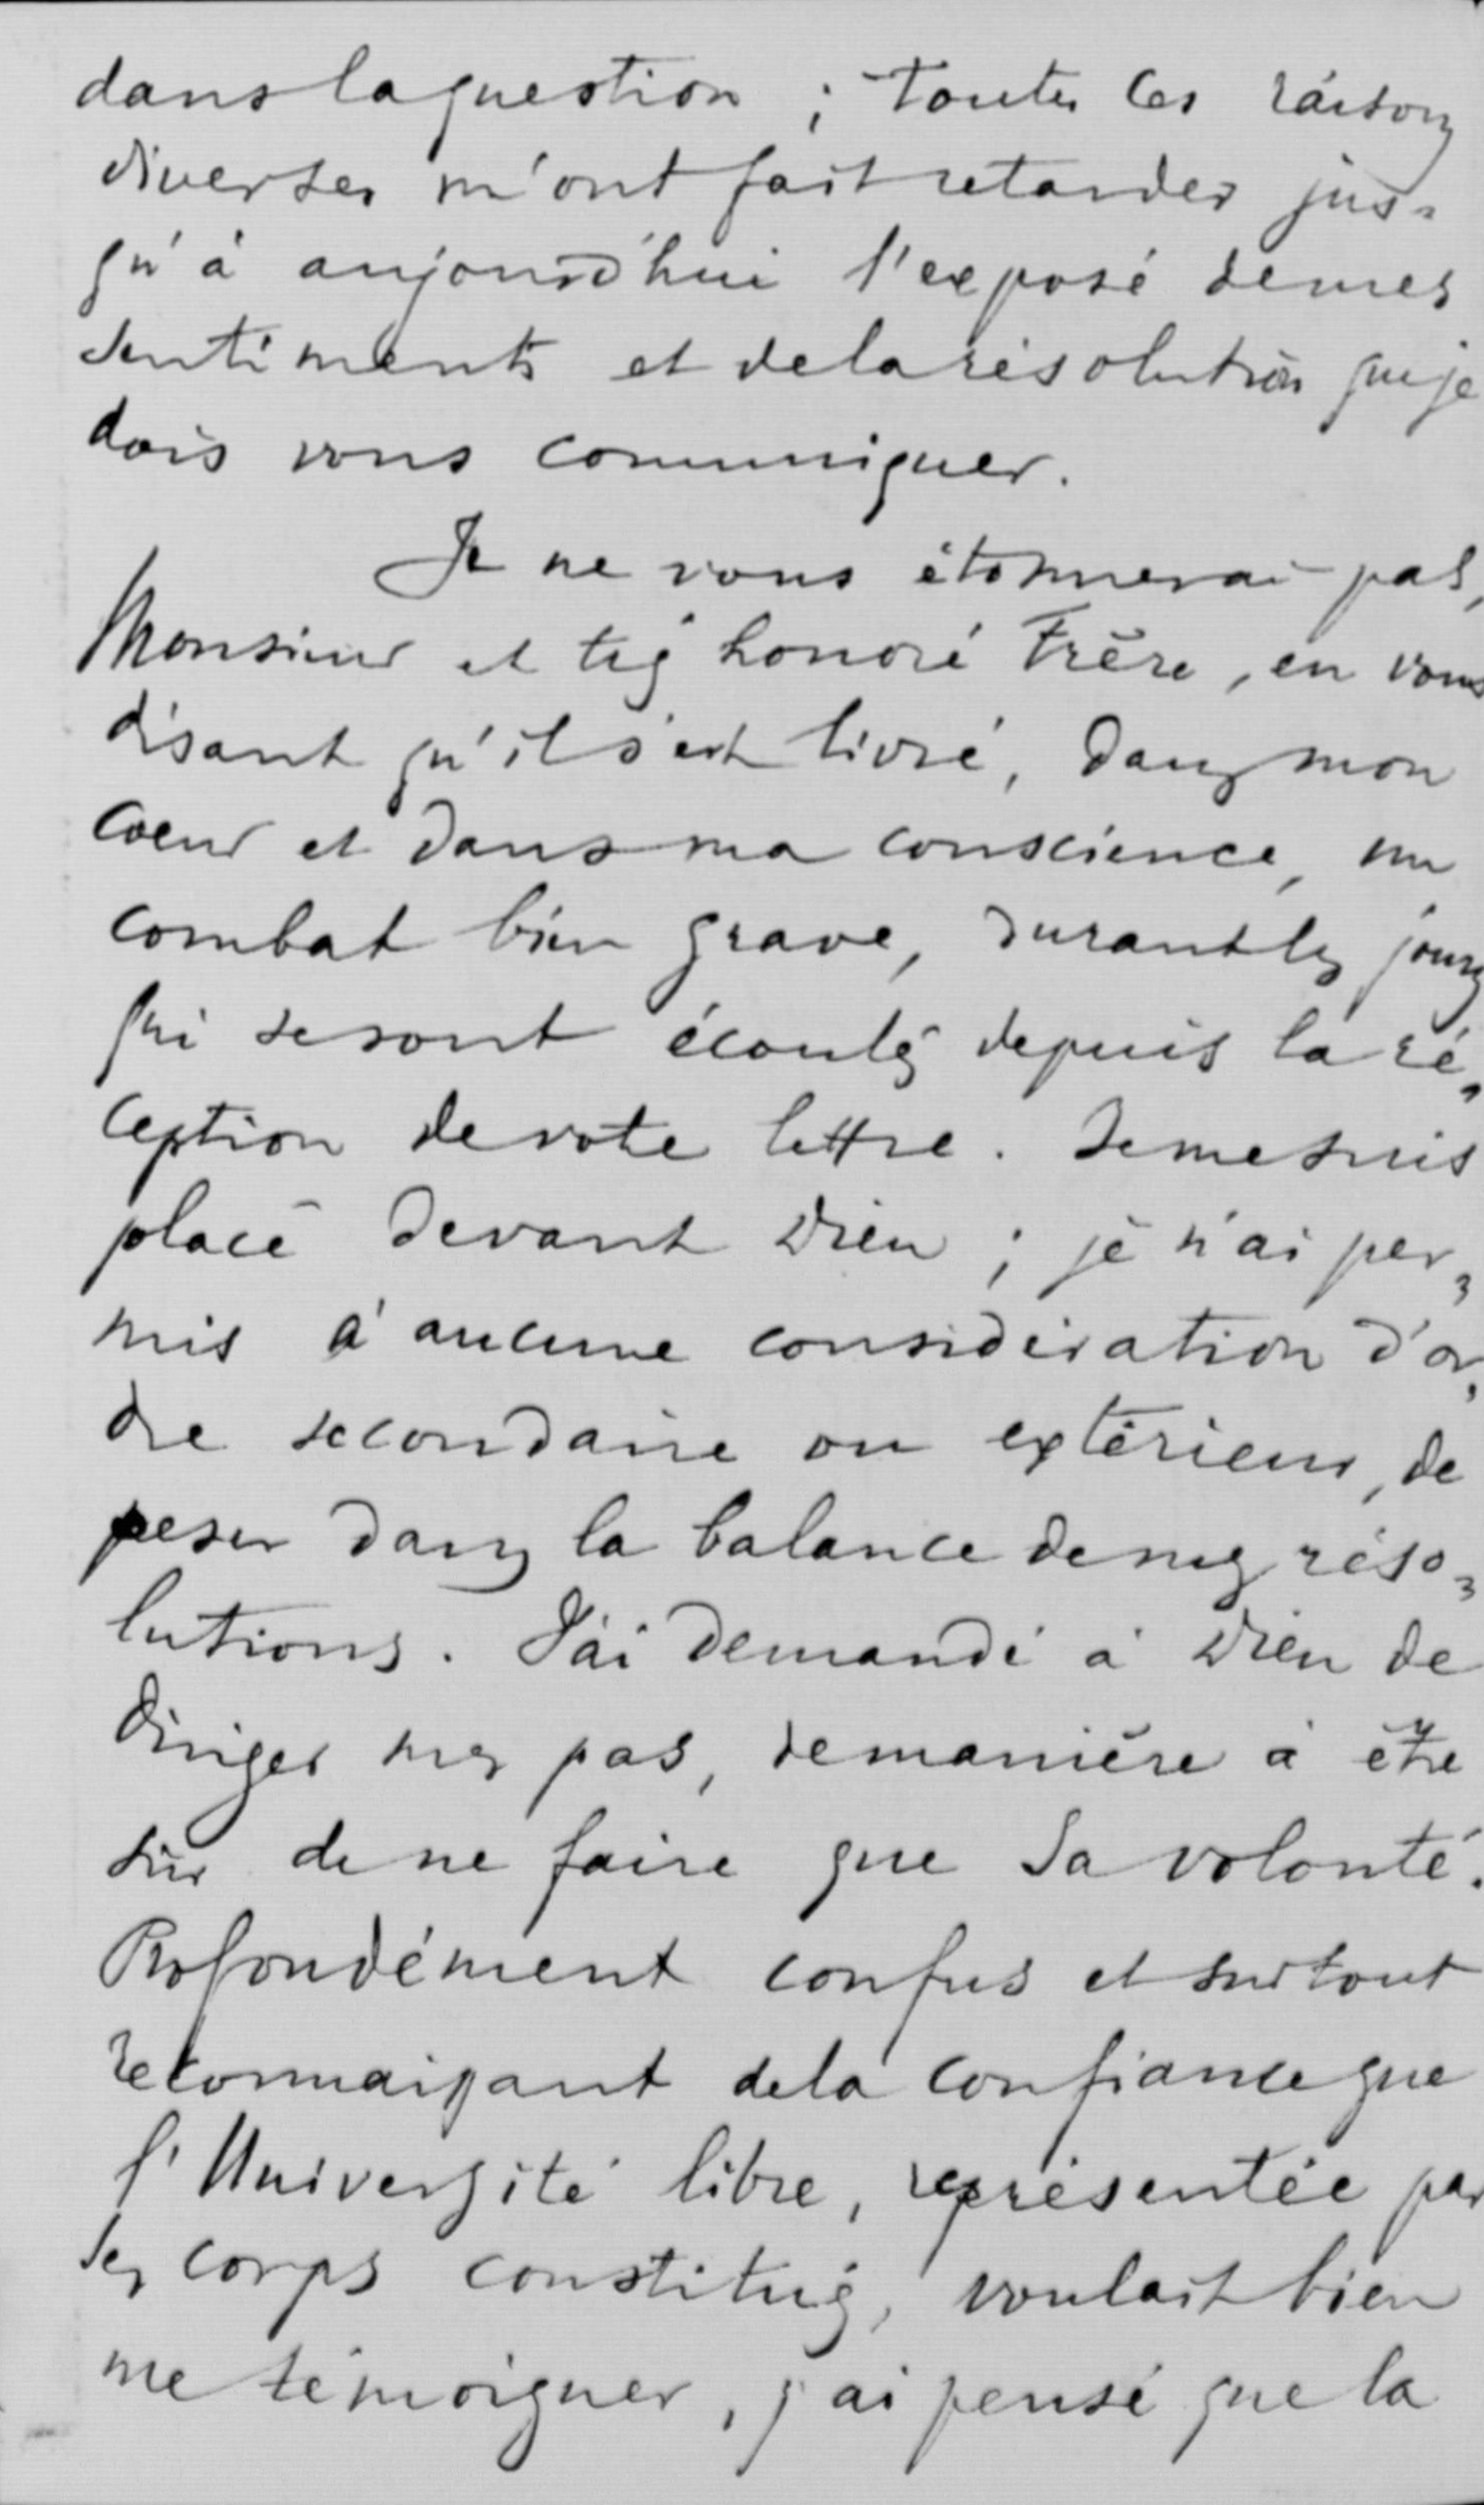 dans la question ; toutes ces raisons
diverses m'ont fait retarder jus-
qu'à aujourd'hui l'exposé de mes
sentiments et de la résolution que je
dois vous communiquer.
Je ne vous étonnerai pas,
Monsieur et très honoré Frère, en vous
disant qu'il s'est livré, dans mon
coeur et dans ma conscience, un
combat bien grave, durant les jours
qui se sont écoulés depuis la ré-
ception de votre lettre. Je me suis
placé devant Dieu ; je n'ai per-
mis à aucune considération d'or-
dre secondaire ou extérieur, de
peser dans la balance de mes réso-
lutions. J'ai demandé à Dieu de
diriger mes pas, de manière à être
sûr de ne faire que Sa volonté.
Profondément confus et surtout
reconnaissant de la confiance que
l'Université libre, représentée par
ses corps constitués, voulait bien
me témoigner, j'ai pensé que la